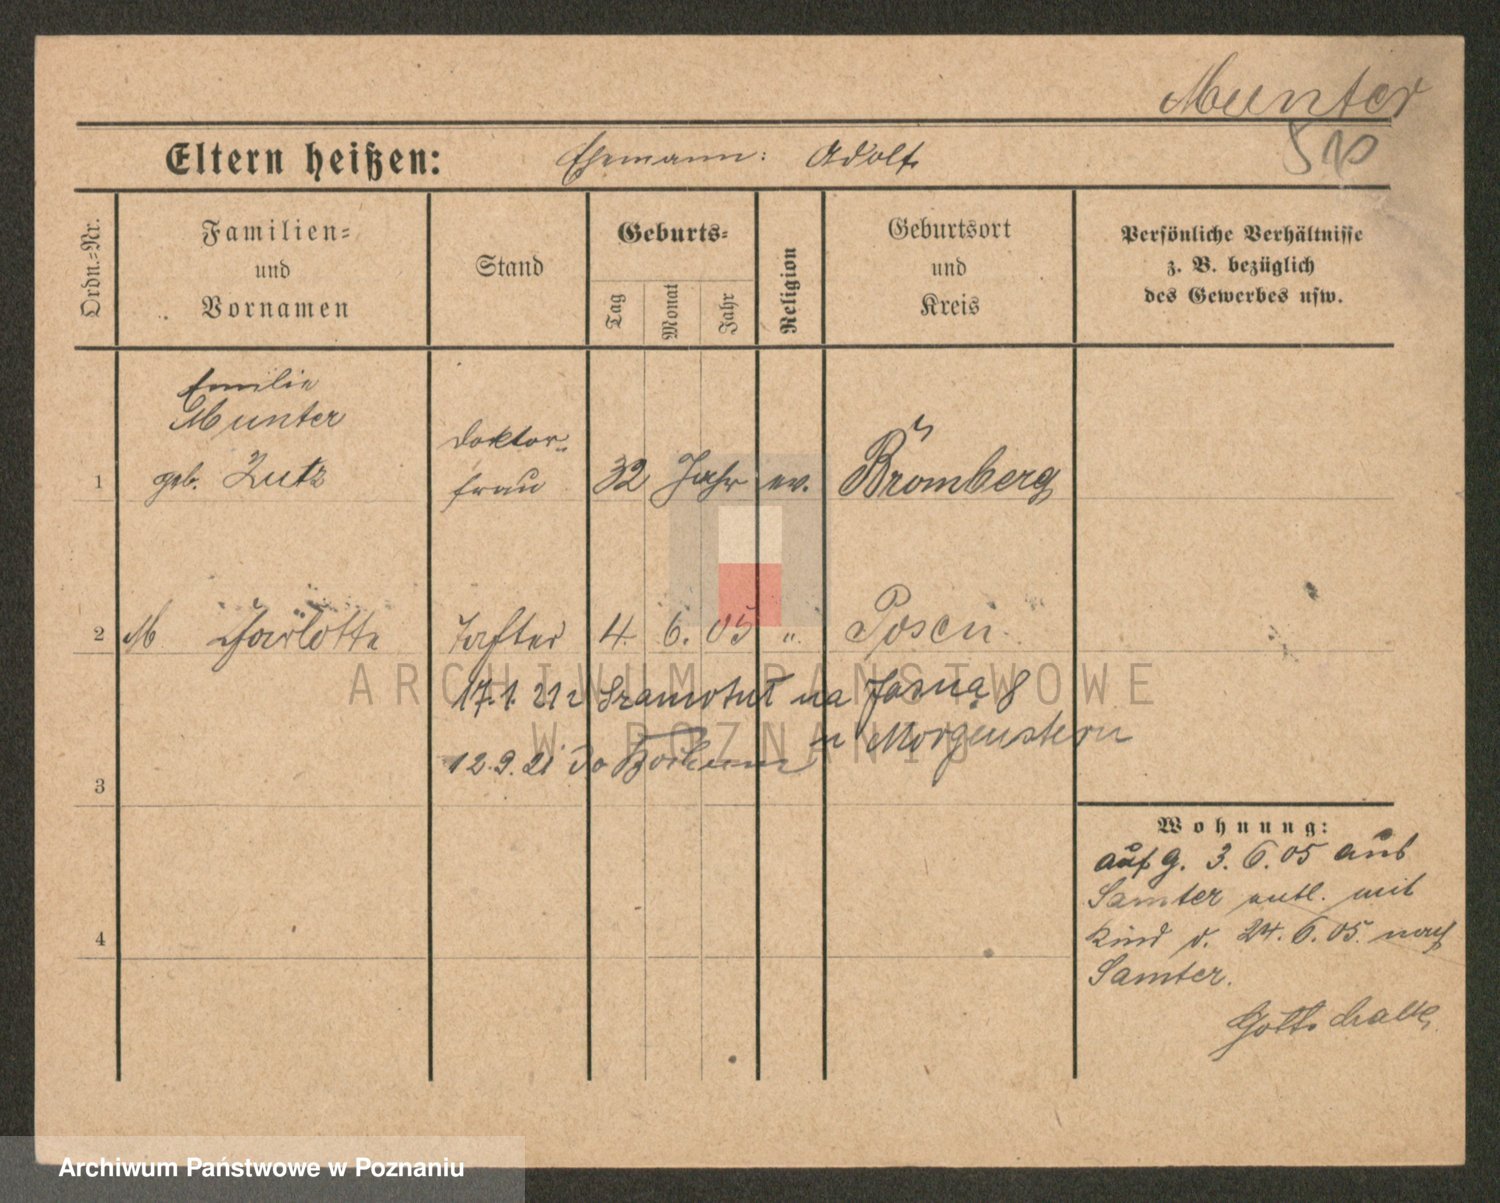 Munter
Eltern heißen: Ehemann: Adolf
Ordn.-Nr.
Familien-
und
Vornamen
Stand
Geburts-
Tag
Monat
Jahr
Religion
Geburtsort
und
Kreis
Persönliche Verhältnisse
z. B. bezüglich
des Gewerbes usw.
Emilie
Munter
Doktor-
1 geb. Lutz frau 32 Jahr ev. Bromberg
2 M Charlotte Tochter 4. 6. 05 ". Posen
17.1.21 z Szamotuł na Jasną 8
u Morgenstern
12.9.21 do
3
Wohnung:
aufg. 3.6.05 aus
Samter entl. mit
Kind d. 24.6.05. nach
4
Samter.
Gottschalk
ARCHIWUM PAŃSTWOWE
W POZNANIU
Archiwum Państwowe w Poznaniu